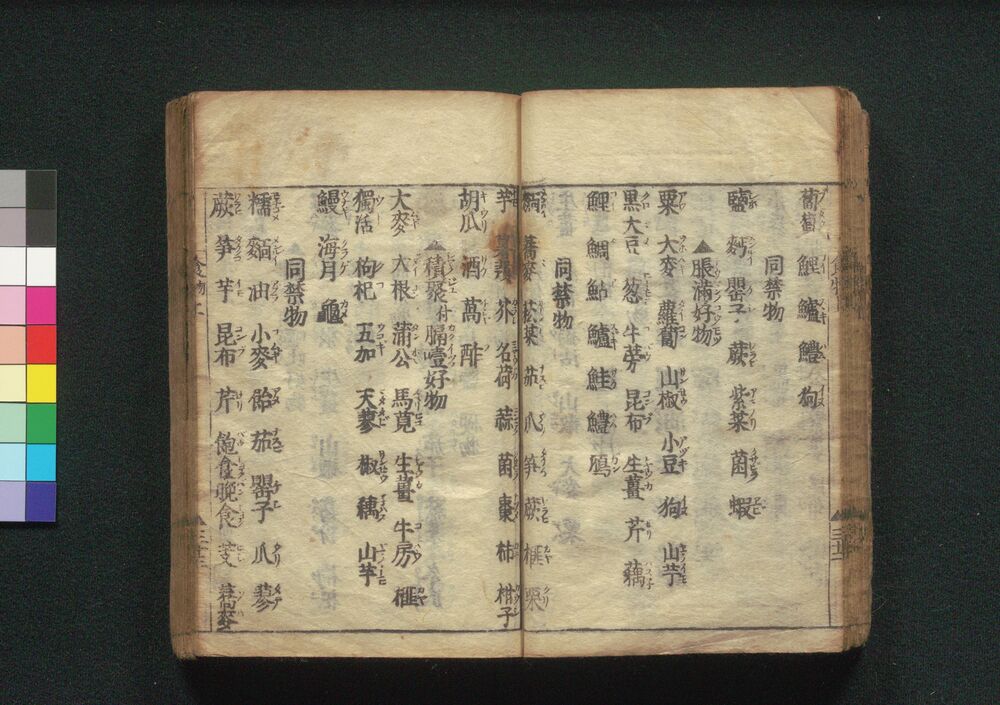 蔔 鯉 鱸 鱧 狗
同禁物
鹽 麪 罌子 蕨 紫菜 菌 蝦
▲脹滿好物
粟 大麥 蘿蔔 山椒 小豆 狗 山芋
黒大豆 葱 牛蒡 昆布 生薑 芹 藕
鯉 鯛 鮎 鱸 鮭 鱧
同禁物
蕎麥 菘菜 茄 瓜 笋 蕨 榧 栗
芋 芥 名荷 蒜 菌 棗 柿 柑子
胡瓜 酒 萵 酢
▲積聚付膈噎好物
大麥 大根 蒲公 馬莧 生薑 牛房 榧
獨活 枸杞 五加 天蓼 椒 藕 山芋
鰻 海月 龜
同禁物
糯 麵 油 小麥 飴 茄 罌子 瓜 蓼
蕨 笋 芋 昆布 芹 飽食 晩食 芰 蕎麥